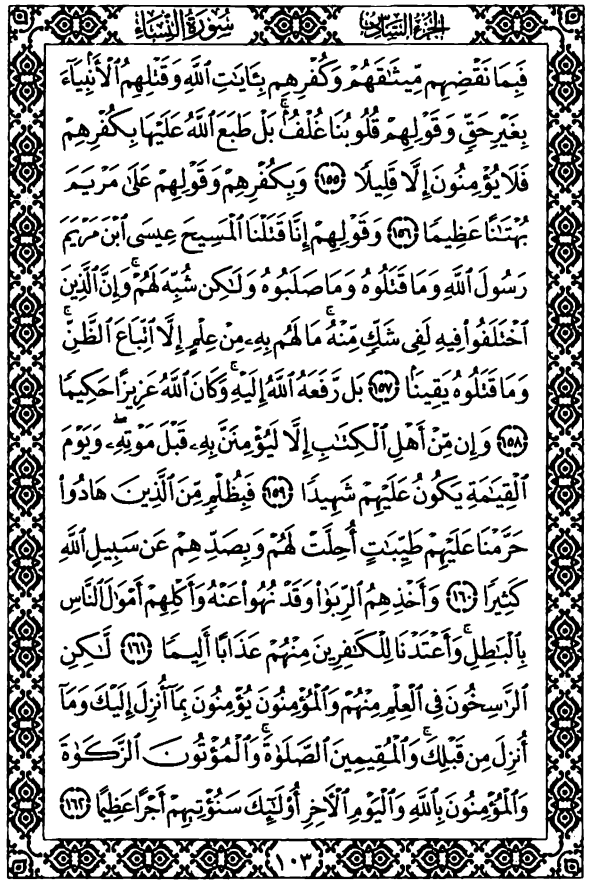 سُورَةُ النِّسَاءِ الجُزْءُ السَّادِسُ
فَبِمَا نَقْضِهِم مِّيثَٰقَهُمْ وَكُفْرِهِم بِـَٔايَٰتِ ٱللَّهِ وَقَتْلِهِمُ ٱلْأَنۢبِيَآءَ
بِغَيْرِ حَقٍّ وَقَوْلِهِمْ قُلُوبُنَا غُلْفٌۢ ۚ بَلْ طَبَعَ ٱللَّهُ عَلَيْهَا بِكُفْرِهِمْ
فَلَا يُؤْمِنُونَ إِلَّا قَلِيلًا ١٥٥ وَبِكُفْرِهِمْ وَقَوْلِهِمْ عَلَىٰ مَرْيَمَ
بُهْتَٰنًا عَظِيمًا ١٥٦ وَقَوْلِهِمْ إِنَّا قَتَلْنَا ٱلْمَسِيحَ عِيسَى ٱبْنَ مَرْيَمَ
رَسُولَ ٱللَّهِ وَمَا قَتَلُوهُ وَمَا صَلَبُوهُ وَلَٰكِن شُبِّهَ لَهُمْ ۚ وَإِنَّ ٱلَّذِينَ
ٱخْتَلَفُوا۟ فِيهِ لَفِى شَكٍّ مِّنْهُ ۚ مَا لَهُم بِهِۦ مِنْ عِلْمٍ إِلَّا ٱتِّبَاعَ ٱلظَّنِّ ۚ
وَمَا قَتَلُوهُ يَقِينًۢا ١٥٧ بَل رَّفَعَهُ ٱللَّهُ إِلَيْهِ ۚ وَكَانَ ٱللَّهُ عَزِيزًا حَكِيمًا
١٥٨ وَإِن مِّنْ أَهْلِ ٱلْكِتَٰبِ إِلَّا لَيُؤْمِنَنَّ بِهِۦ قَبْلَ مَوْتِهِۦ ۖ وَيَوْمَ
ٱلْقِيَٰمَةِ يَكُونُ عَلَيْهِمْ شَهِيدًا ١٥٩ فَبِظُلْمٍ مِّنَ ٱلَّذِينَ هَادُوا۟
حَرَّمْنَا عَلَيْهِمْ طَيِّبَٰتٍ أُحِلَّتْ لَهُمْ وَبِصَدِّهِمْ عَن سَبِيلِ ٱللَّهِ
كَثِيرًا ١٦٠ وَأَخْذِهِمُ ٱلرِّبَوٰا۟ وَقَدْ نُهُوا۟ عَنْهُ وَأَكْلِهِمْ أَمْوَٰلَ ٱلنَّاسِ
بِٱلْبَٰطِلِ ۚ وَأَعْتَدْنَا لِلْكَٰفِرِينَ مِنْهُمْ عَذَابًا أَلِيمًا ١٦١ لَّٰكِنِ
ٱلرَّٰسِخُونَ فِى ٱلْعِلْمِ مِنْهُمْ وَٱلْمُؤْمِنُونَ يُؤْمِنُونَ بِمَآ أُنزِلَ إِلَيْكَ وَمَآ
أُنزِلَ مِن قَبْلِكَ ۚ وَٱلْمُقِيمِينَ ٱلصَّلَوٰةَ ۚ وَٱلْمُؤْتُونَ ٱلزَّكَوٰةَ
وَٱلْمُؤْمِنُونَ بِٱللَّهِ وَٱلْيَوْمِ ٱلْءَاخِرِ أُو۟لَٰٓئِكَ سَنُؤْتِيهِمْ أَجْرًا عَظِيمًا ١٦٢
١٠٣